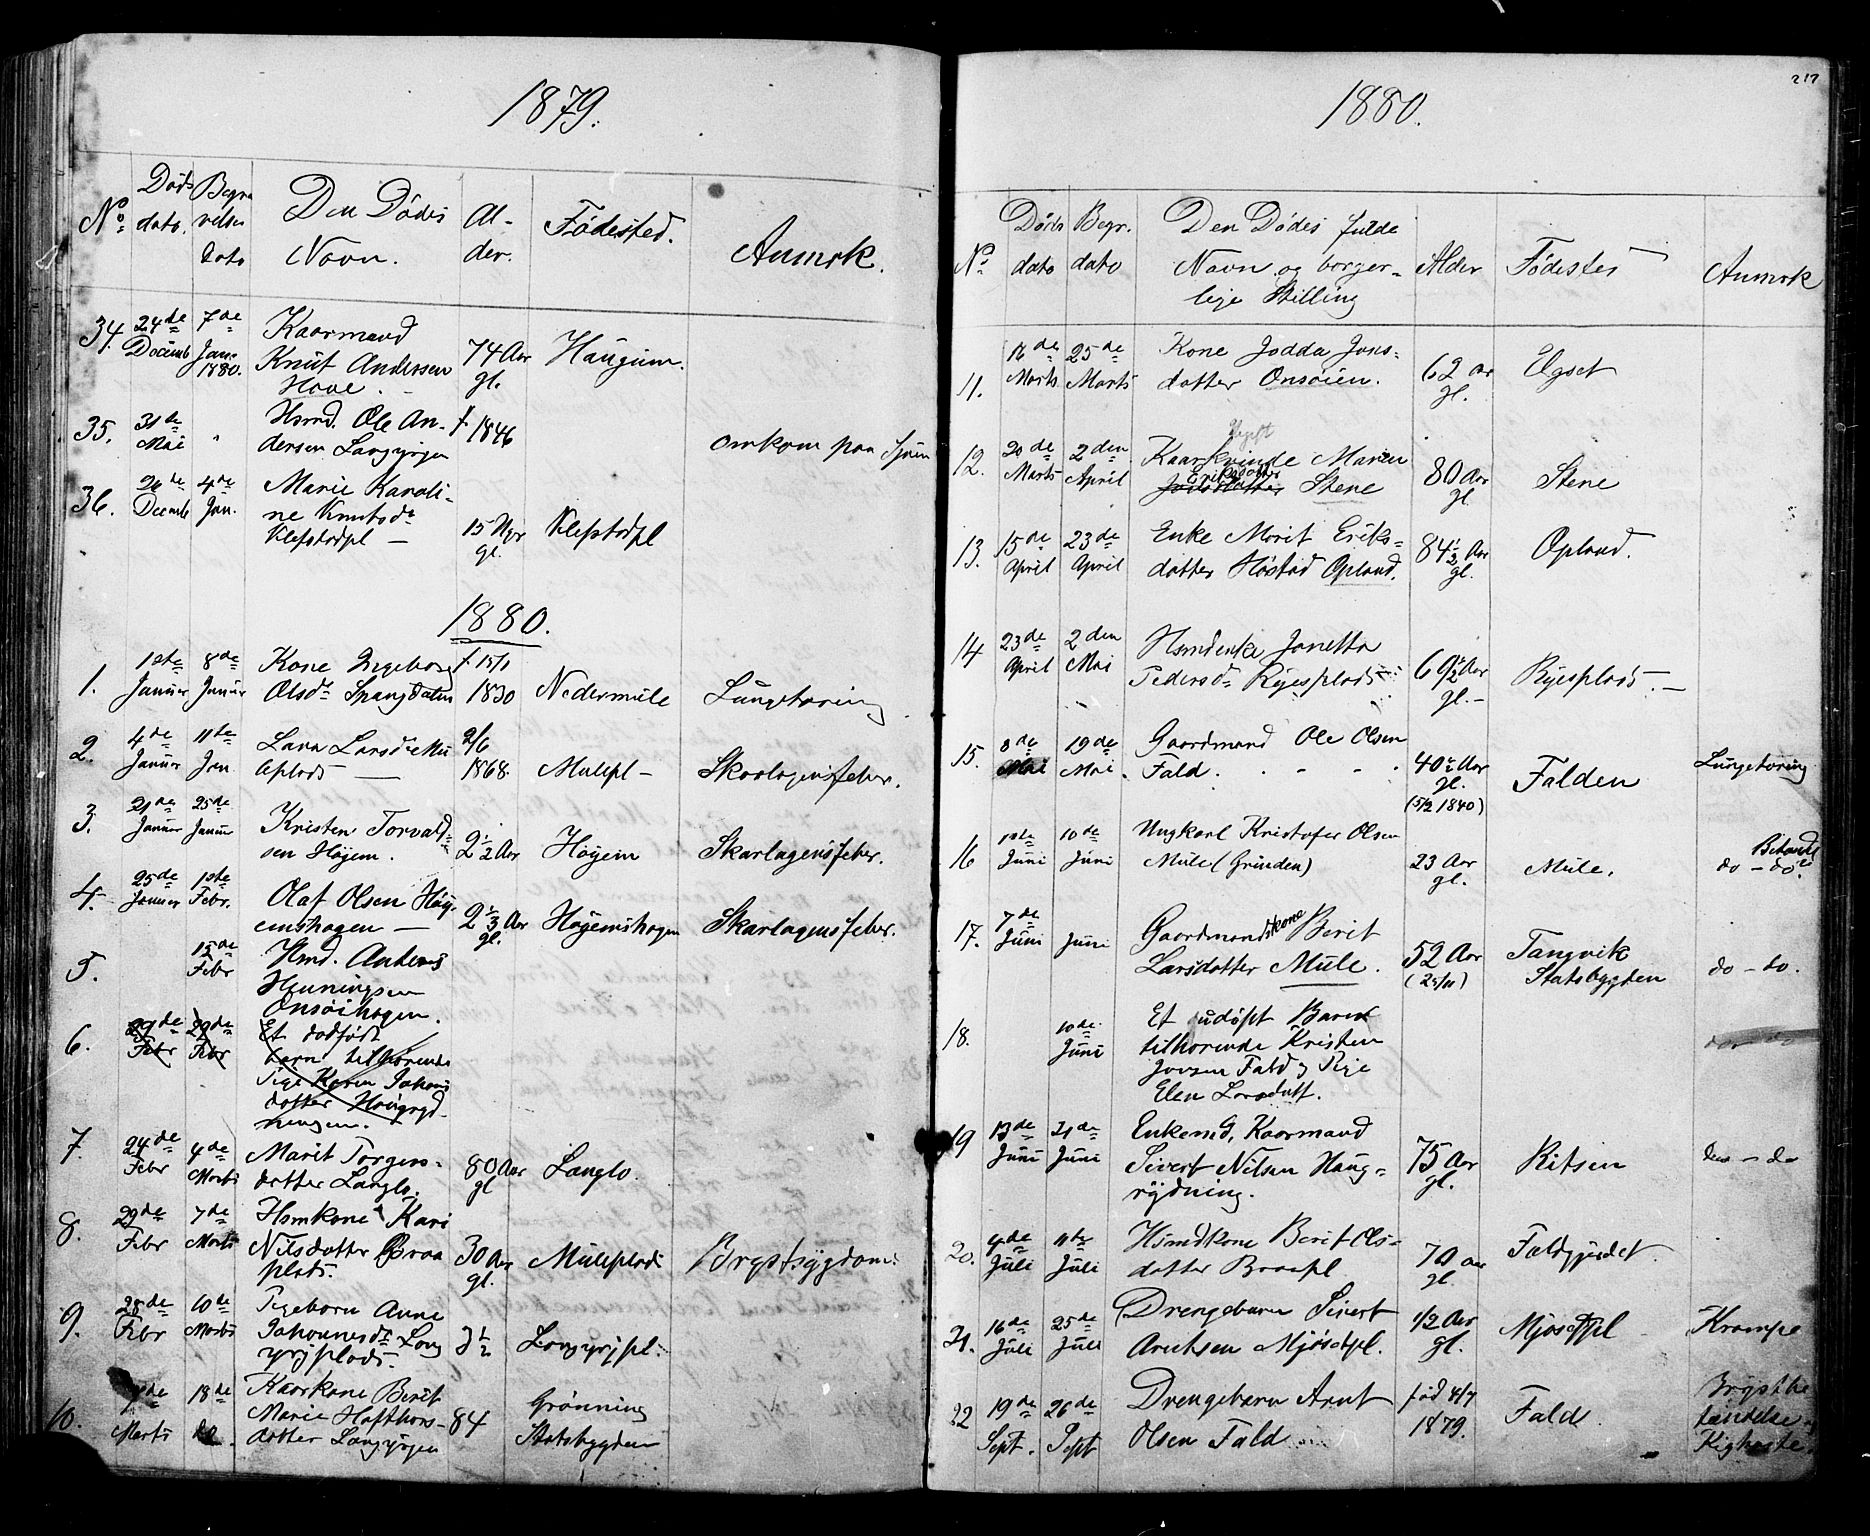 1879.
No. Døds dato. Begra velses Dato Den Dødes Navn. Al- der. Fødested. Anmrk.
34. 24de Decemb 7de Jan. 1880. Kaarmand
Knut Andersen
Hove. 74 Aar gl. Haugum.
35. 31te Mai " Hsmd. Ole An-
dersen Langyrjen f. 1846 omkom paa Sjøen
36. 26de Decemb 4de Jan. Marie Karoli-
ne Knutsdr
Klefstadpl — 15 Uger gl. Klefstadpl
1880.
1. 1ste Januar 8de Januar Kone Ingeborg
Olsdr Spangdalen f. 15/1 1830 Nedermule Lungetæring
2. 4de Januar 11te Jan Lava Larsdr Mu
leplads — 2/6 1868. Mulepl — Skarlagensfeber.
3. 21de Januar 25de Januar Kristen Torvald-
sen Høgem. 2 1/2 Aar Høgem Skarlagensfeber.
4. 25de Januar 1ste Febr. Olaf Olsen Høg-
emshagen — 2 1/3 Aar gl. Høgemshagen Skarlagensfeber.
5. 15de Febr Hsmd. Anders
Henningsen
Onsøihagen.
6. 29de Febr 29de Febr Et dødfødt
barn tilhørende
Pige Karen Johans
datter Haugryd-
ningen.
7. 24de Febr 4de Marts Marit Torgers-
datter Langlo. 80 Aar gl Langlo.
8. 29de Febr 7de Marts Hsmkone Kari
Nilsdatter Braa
plads. 30 Aar gl. Muleplads Brystsygdom.
9. 28de Febr 10de Marts Pigebarn Anne
Johannesdr Lang
yrjplads. 3 1/2 Langyrjpl.
10. de Marts 18de do. Kaarkone Berit
Marie Hafthors-
datter Langyrjen 84 Grønning
Statsbygden
217
1880.
No. Døds dato Begr. dato Den Dødes fulde
Navn og borger-
lige Stilling Alder Fødested Anmrk
11. de Marts 25de Marts Kone Jodda Jons-
datter Onsøien. 62 ar gl. Elgset
12. 20de Marts 2den April Ugift
Kaarkvinde Maren
Eriksdatter
Stene 80 Aar gl. Stene
13. 15de April 23de April Enke Marit Eriks-
datter Høstad Opland. 84 1/2 Aar gl. Opland.
14 23de April 2den Mai Hsmdenke Janetta
Pedersdr Ryesplads 69 1/2 Aar gl. — Ryesplads. —
15. 8de Mai 19de Mai. Gaardmand Ole Olsen
Fald. 40 Aar gl. (5/2 1840) Falden Lungetæring
16 1ste Juni 10de Juni Ungkarl Kristofer Olsen
Mule (Grinden) 23 Aar gl. Mule. do — do
17. 7de Juni Juni Gaardmandskone Berit
Larsdatter Mule. 52 Aar (25/11) Tangvik
Statsbygden do — do.
18. 10de Juni Et udøpt Barn
tilhørende Kristen
Jousen Fald og Pige
Elen Larsdatt. do
19 13de Juni 21de Juni Enkemd, Kaarmand
Sivert Nilsen Haug-
rydning. 75 Aar gl. Ritsen do — do
20. 4de Juli 11te Juli Hsmdkone Berit Ols-
datter Braapl 70 aar gl. Faldgjerdet.
21. 16de Juli 25de Juli Drengebarn Sivert
Arntsen Mjøsetpl. 1/2 Aar gl. Mjøsetpl Krampe
22 19de Sept. 26de Sept Drengebarn Arnt
Olsen Fald fød 4/7 1879. Fald. Brystbe
tændelse
Kighoste